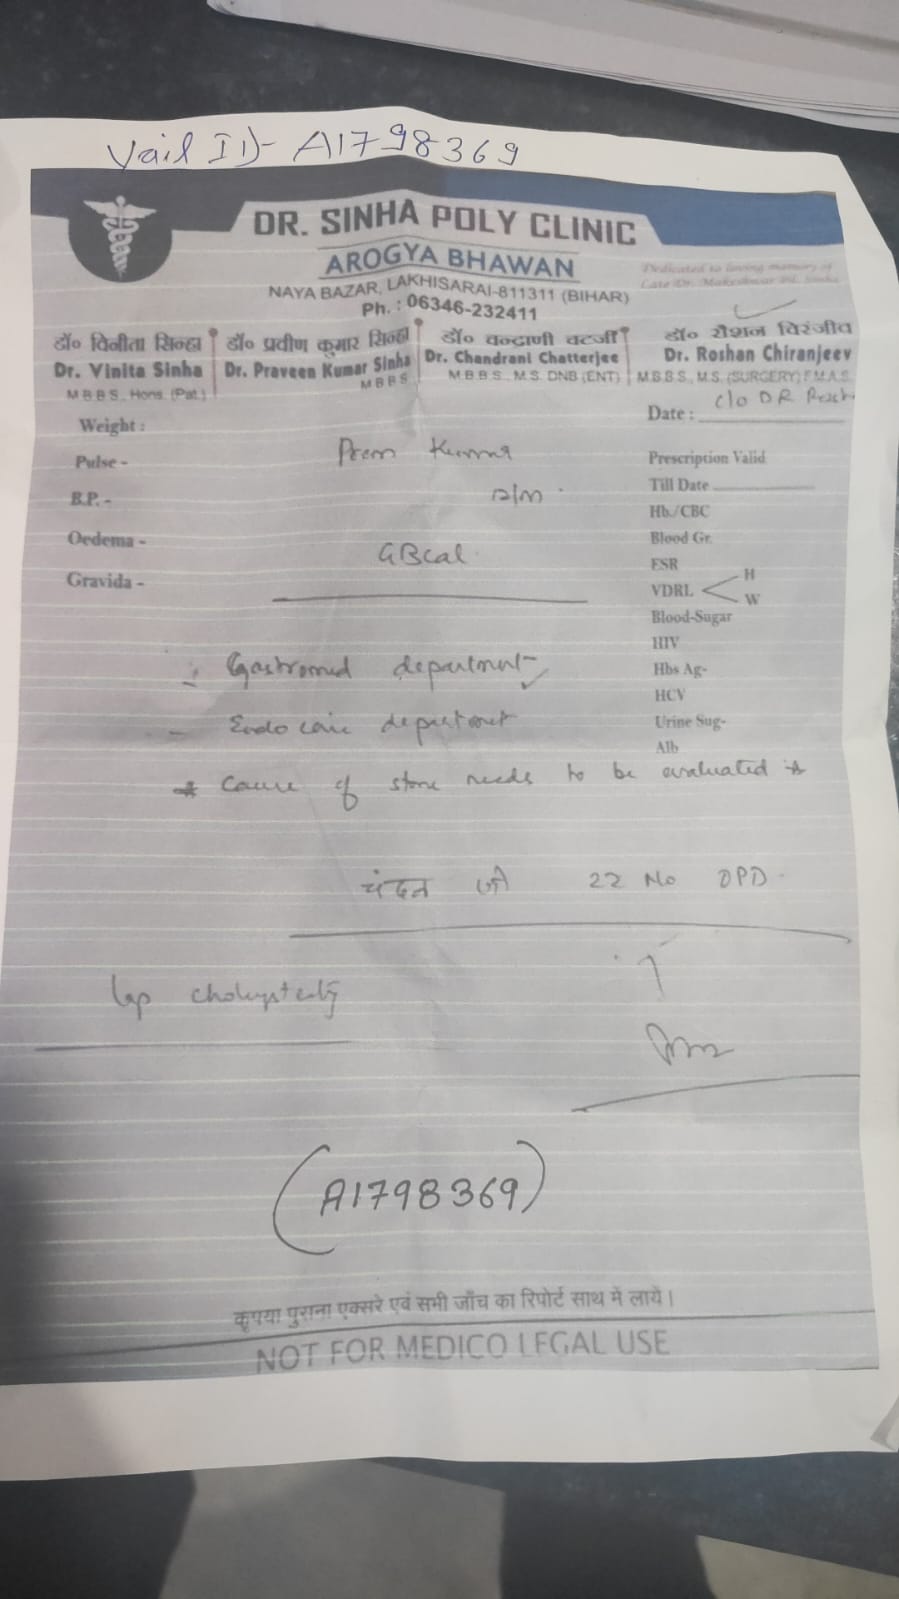 Vail ID- A1798369
DR. SINHA POLY CLINIC
AROGYA BHAWAN
NAYA BAZAR, LAKHISARAI-811311 (BIHAR)
Ph. : 06346-232411
Dedicated to loving memory of
Late Dr. Sinha
डॉ० विनीता सिन्हा
Dr. Vinita Sinha
M.B.B.S., Hons. (Pat.)
डॉ० प्रवीण कुमार सिन्हा
Dr. Praveen Kumar Sinha
M B B S
डॉ० चन्द्राणी चटर्जी
Dr. Chandrani Chatterjee
M.B.B.S., M.S. DNB (ENT)
डॉ० रौशन चिरंजीव
Dr. Roshan Chiranjeev
M.B.B.S., M.S. (SURGERY) F.M.A.S.
c/o DR
Date :
Weight :
Pulse -
B.P. -
Oedema -
Gravida -
Prem Kumar
12/m
GBcal
Prescription Valid
Till Date
Hb./CBC
Blood Gr.
ESR
VDRL H
W
Blood-Sugar
HIV
Hbs Ag-
HCV
Urine Sug-
Alb
- Gastromed department
- department
* Cause of stone needs to be evaluated *
चंदन जी 22 No OPD
Lap
(A1798369)
कृपया पुराना एक्सरे एवं सभी जाँच का रिपोर्ट साथ में लायें।
NOT FOR MEDICO LEGAL USE